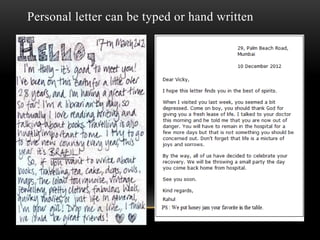 Personal letter can be typed or hand written
17th March 2012
HELLO,
I'm Holly - it's good to meet you!
I've been on this Earth for a little over
28 years, and I'm having a great time
so far! I'm a librarian by day, so
naturally I love reading, writing and
talking about books. Travelling is also
hugely important to me. I try to go
to one new country every year, this
year it's BRAZIL!
So, if you want to write about
books, travelling, tea, cake, dogs, owls,
maps, the colour turquoise, vintage
jewellery, pretty clothes, fabulous heels,
funky movies or just life in general,
I'm your girl! Drop me a line, I think
we could be great friends!
29, Palm Beach Road,
Mumbai
10 December 2012
Dear Vicky,
I hope this letter finds you in the best of spirits.
When I visited you last week, you seemed a bit
depressed. Come on boy, you should thank God for
giving you a fresh lease of life. I talked to your doctor
this morning and he told me that you are now out of
danger. You will have to remain in the hospital for a
few more days but that is not something you should be
concerned out. Don't forget that life is a mixture of
joys and sorrows.
By the way, all of us have decided to celebrate your
recovery. We will be throwing a small party the day
you come back home from hospital.
See you soon.
Kind regards,
Rahul
PS : We put honey jam your favorite in the table.